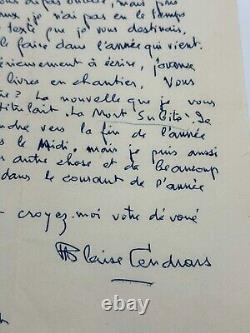 pas oublié, mais plus
je n'ai pas eu le temps
texte que je vous destinais,
le faire dans l'année qui vient.
sérieusement à écrire, j'avance
livres en chantier. Vous
? La nouvelle que je vous
titulait. La Mort Subite. Je
vers la fin de l'année
le Midi, mais je puis aussi
autre chose et de beaucoup
dans le courant de l'année
croyez-moi votre dévoué
Blaise Cendrars